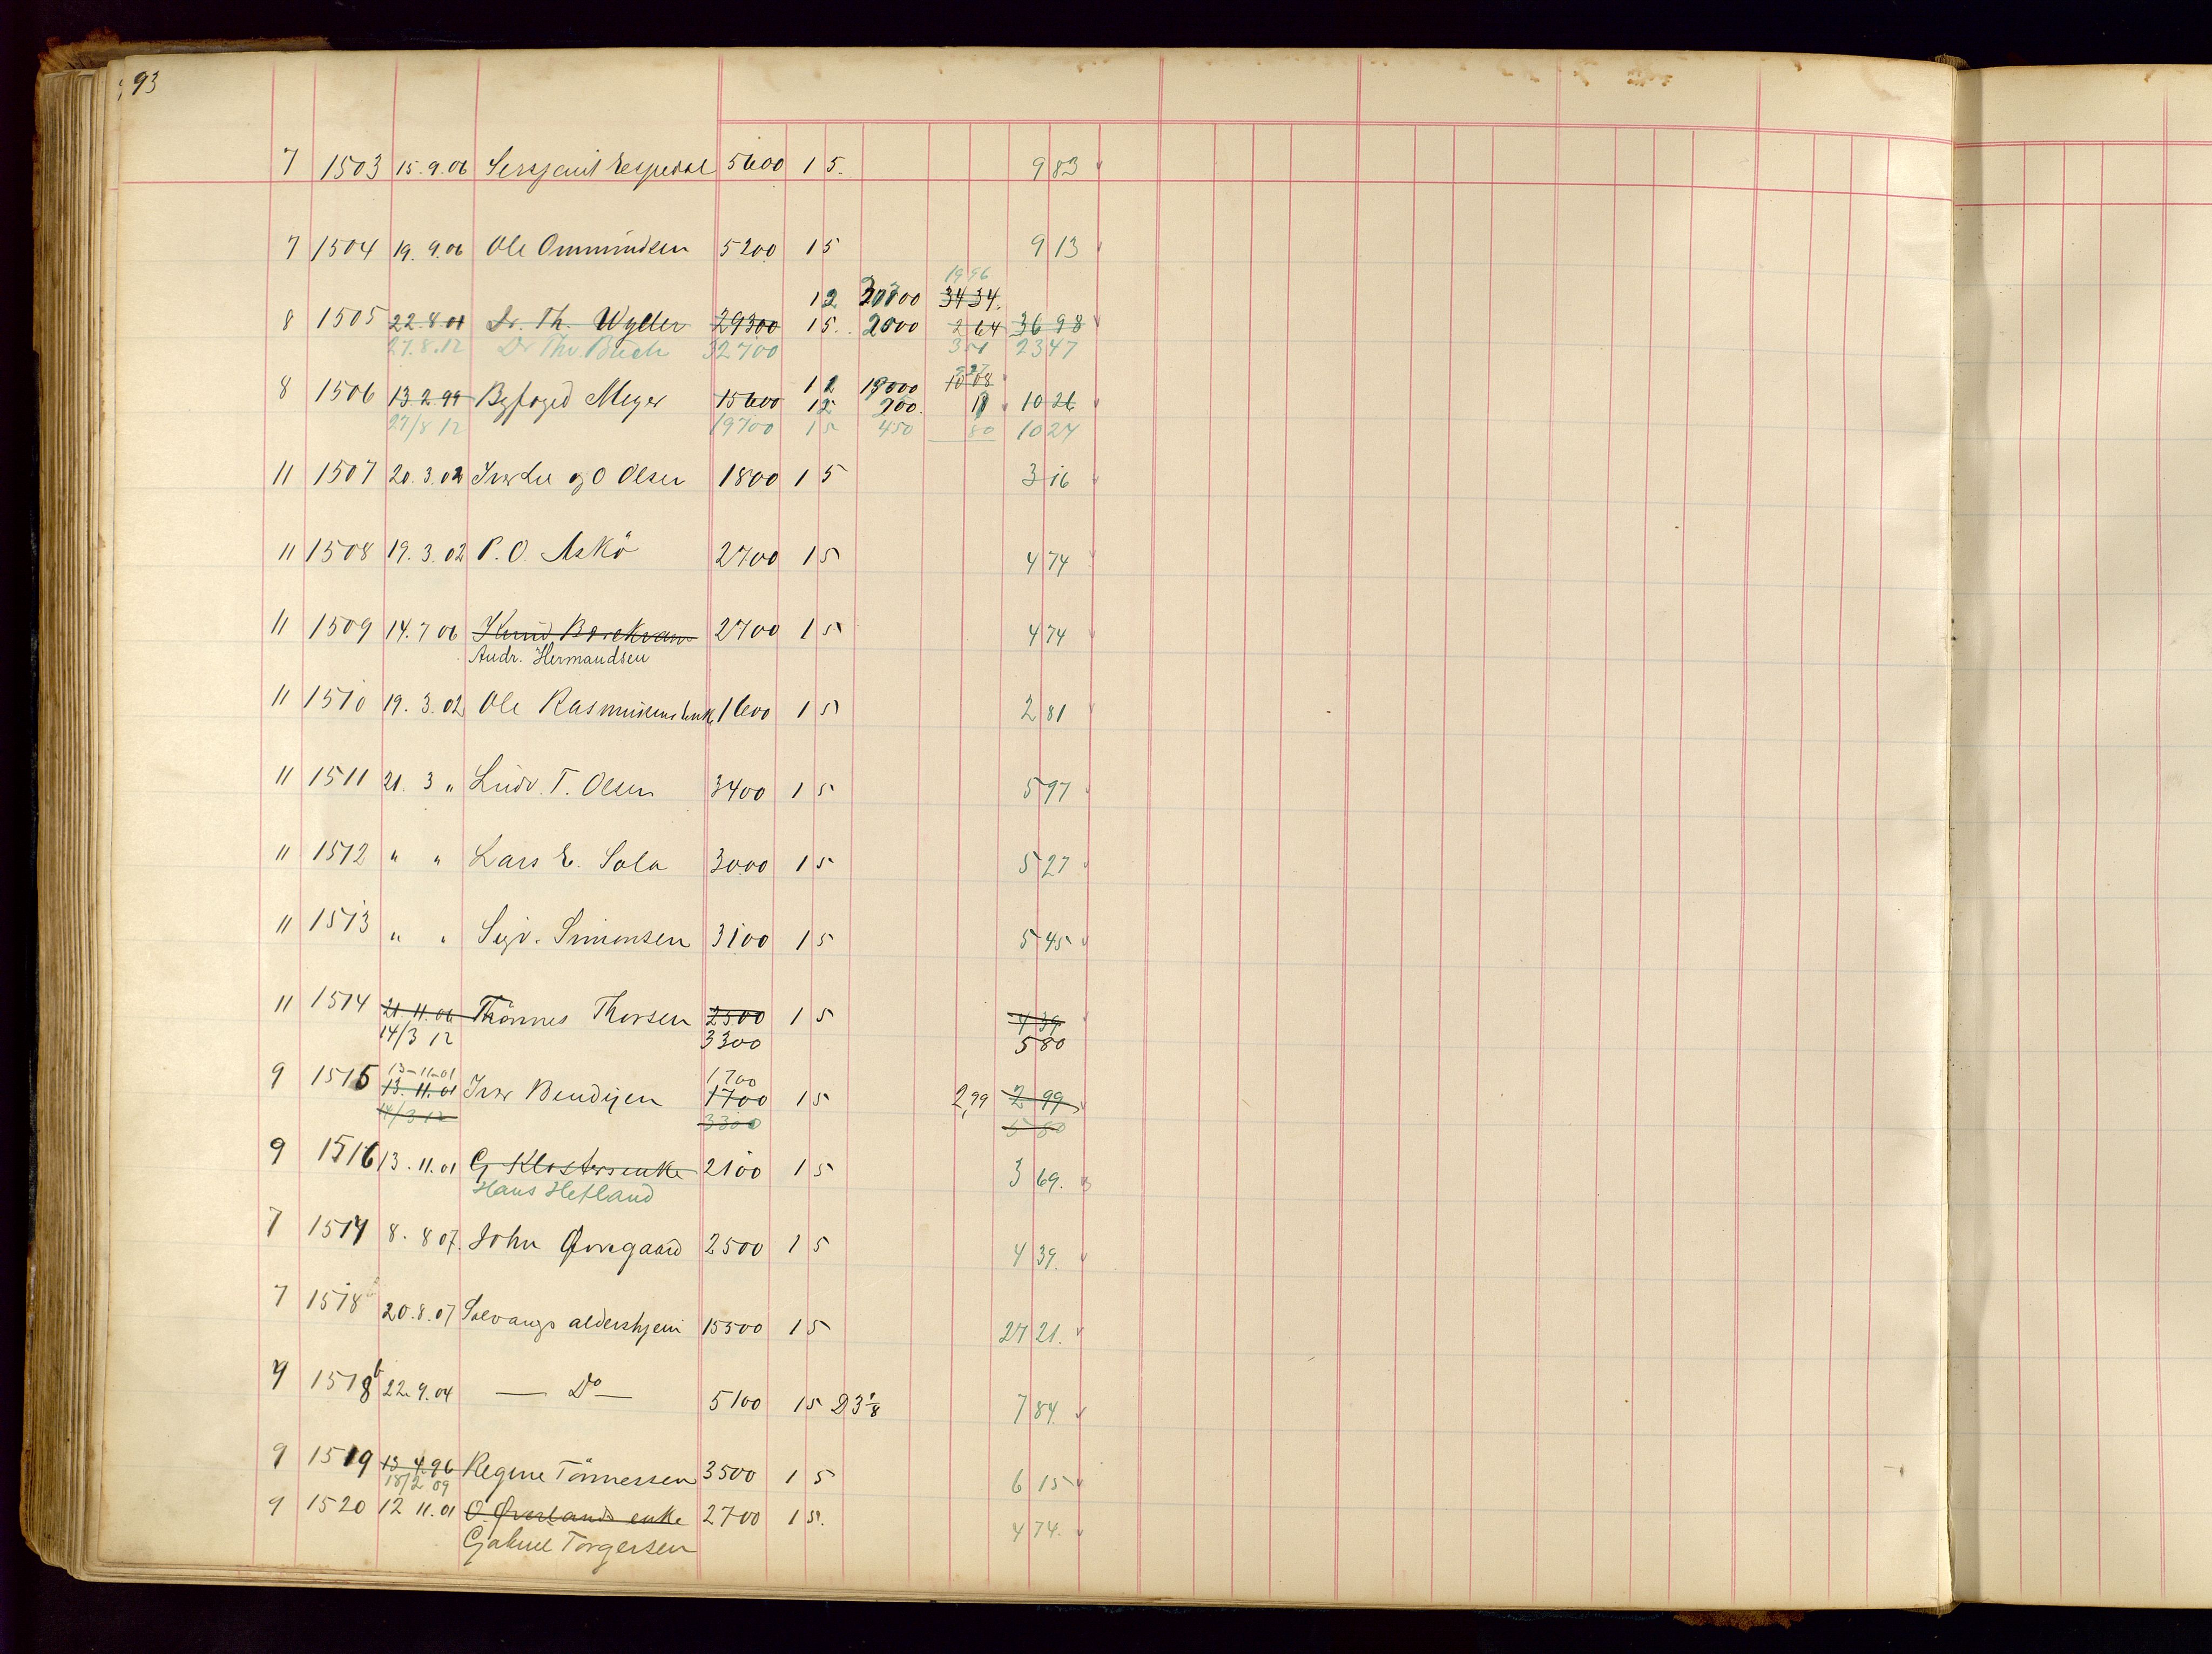 93
7 1503 15.9.06 Sersjant Espedal 5600 1 5. 9 83
7 1504 19.9.06 Ole Ommundsen 5200 1 5 9 13
19 96
12 20300 34 34.
8 1505 22.8.01 Dr. Th. Wyller 29300 15. 2000 2 64 36 98
27.8.12 Dr Thv. Buch 32700 3 51 23 47
12 19000 10 08
8 1506 13 2 99 Byfoged Meyer 15600 15 900. 10 26
27/8 12 19700 15 450 80 10 24
11 1507 20.3.02 Ivar Lie og O Olsen 1800 1 5 3 16
11 1508 19.3.02 P.O. Askö 2700 1 5 4 74
11 1509 14.7 06 Knud 2700 1 5 4 74
Andr. Hermandsen
11 1510 19.3.02 Ole Rasmussens enke 1600 1 5 2 81
11 1511 21. 3 " Ludv. T. Olsen 3400 1 5 5 97
11 1512 " " Lars E. Sola 3000 1 5 5 27
11 1513 " " Sigv. Simonsen 3100 1 5 5 45
11 1514 21.11.06 Thönnes Thorsen 2500 1 5 4 39
14/3 12 3300 5 80
13-11-01 1,700
9 1515 13.11.01 Ivar Bendixen 1700 1 5 2,99 2 99
14/3 12 3300 5 80
9 1516 13.11.01 G Klosters enke 2100 1 5 3 69.
Hans Hetland
7 1517 8.8 07. John Qvregaard 2500 1 5 4 39.
7 1518 20.8.07 Solvangs aldershjem 15500 1 5 27 21.
9 1518b 22.9.04 — Do — 5100 15 23 1/8 7 84.
9 1519 13 4 96 Regine Tönnessen 3500 1 5 6 15
18/2 09
9 1520 12 11.01 O. Øverlands enke 2700 1 5. 4 74.
Gabriel Torgersen